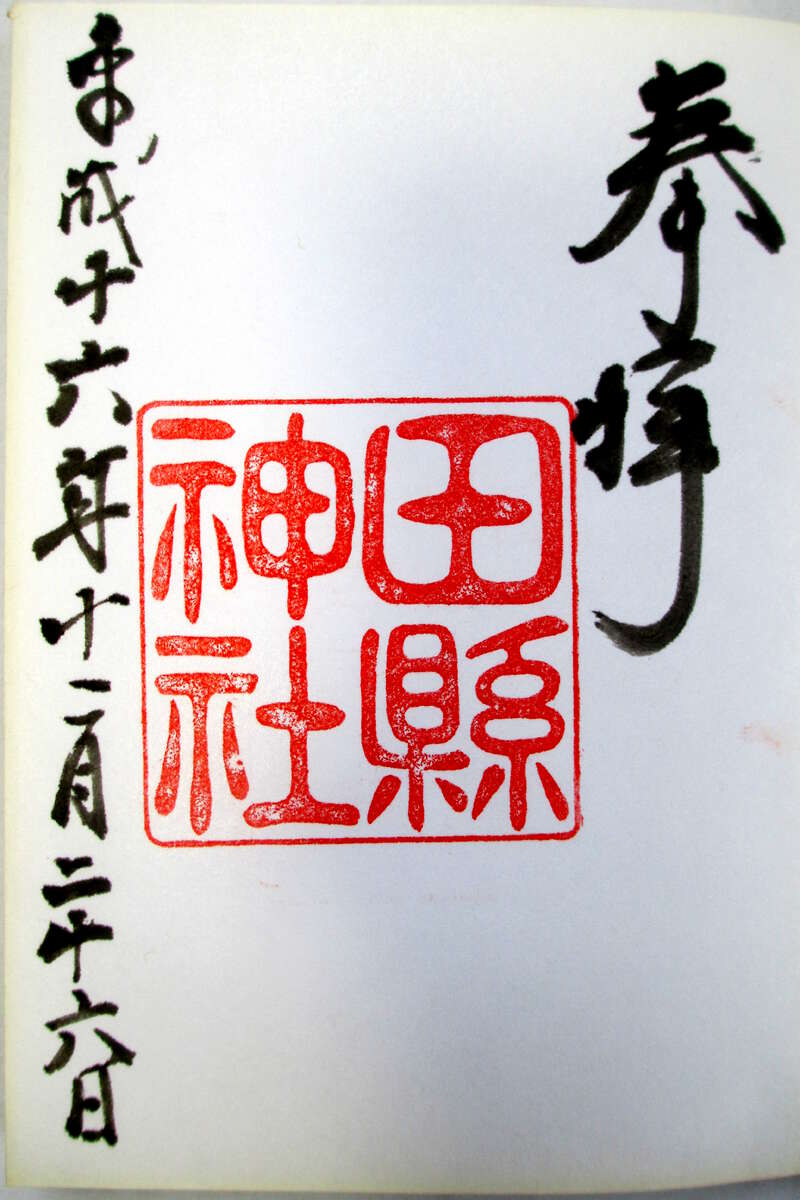 奉拝
田縣
神社
平成十六年十二月二十六日